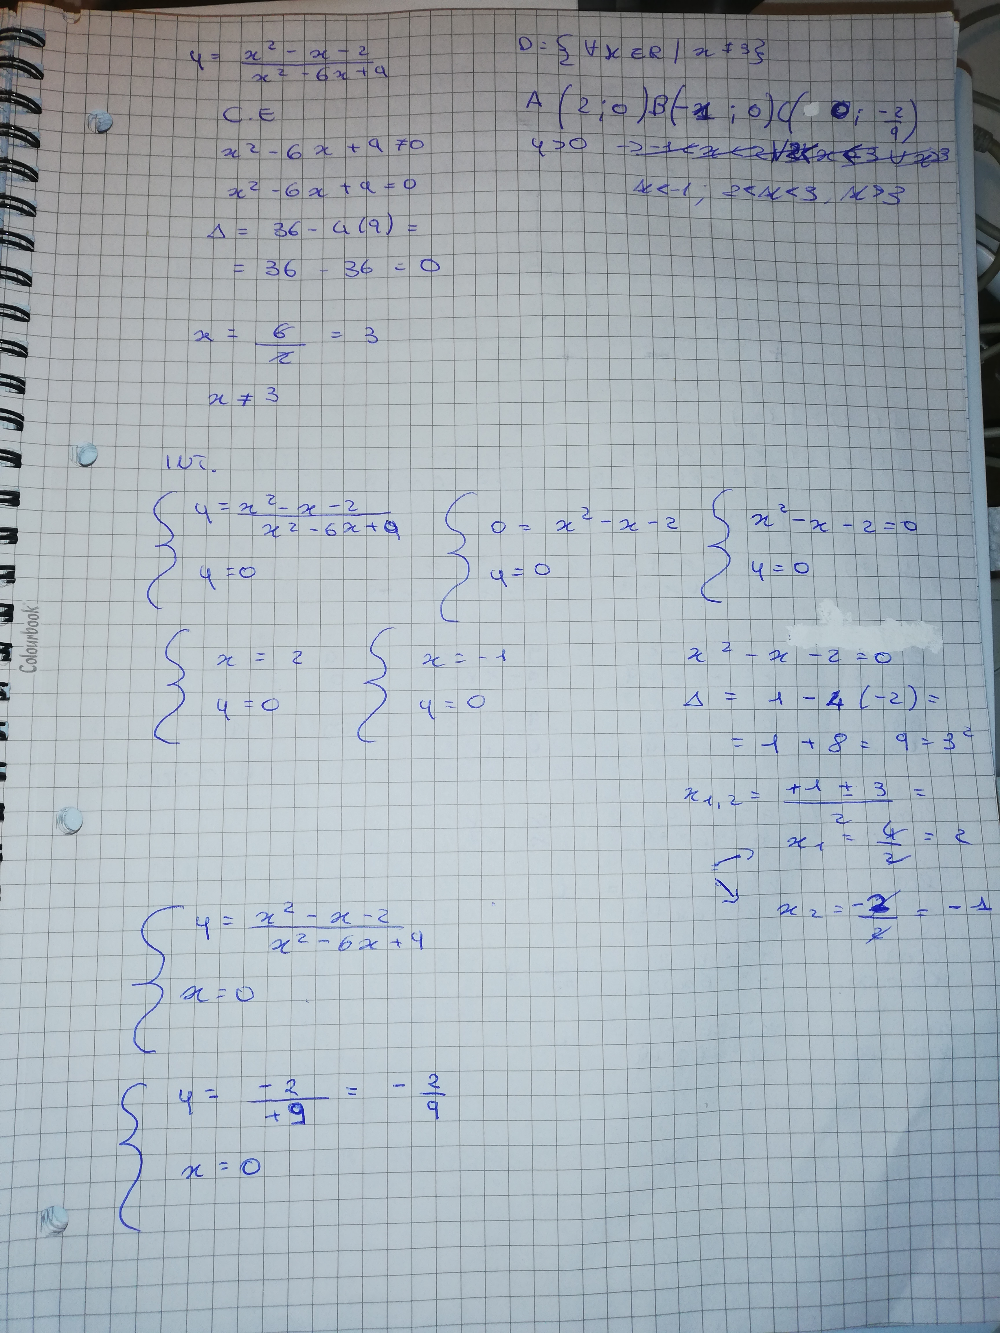 y = x² - x - 2 / x² - 6x + 9
C.E
x² - 6x + 9 ≠ 0
x² - 6x + 9 = 0
Δ = 36 - 4(9) =
= 36 - 36 = 0
x = 6/2 = 3
x ≠ 3
D = { ∀x ∈ R | x ≠ 3}
A (2 ; 0) B(-1 ; 0) C( 0; -2/9)
y > 0
x < -1 ; 2 < x < 3, x > 3
INT.
{ y = x² - x - 2 / x² - 6x + 9
y = 0
{ 0 = x² - x - 2
y = 0
{ x² - x - 2 = 0
y = 0
{ x = 2
y = 0
{ x = -1
y = 0
x² - x - 2 = 0
Δ = 1 - 4 (-2) =
= 1 + 8 = 9 = 3²
x1,2 = +1 ± 3 / 2 =
x1 = 4/2 = 2
x2 = -2/2 = -1
{ y = x² - x - 2 / x² - 6x + 9
x = 0
{ y = -2 / +9 = - 2/9
x = 0
Colourbook